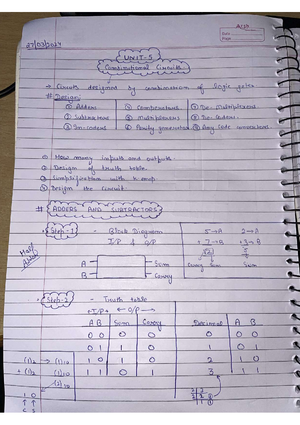 27/03/2024
Date
Page
UNIT-5
Combinational Circuits
→ Circuits designed by combination of logic gates
# Design
① Adders ④ Comparators ⑦ De-Multiplexers
② Subtractors ⑤ Multiplexers ⑧ De-Coders
③ En-coders ⑥ Parity generators ⑨ Any code converters
① How many inputs and outputs
② Design of truth table
③ Simplification with k-map
④ Design the circuit
# ADDERS AND SUBTRACTORS
Half Adder
Step-1 - Block Diagram
I/P & O/P
A Sum
B Carry
5→A 2→A
+7→B +3→B
12 5
Carry Sum Sum
Step-2 - Truth table
←I/P→ ←O/P→
A B Sum Carry Decimal A B
0 0 0 0 0 0 0
0 1 1 0 1 0 1
1 0 1 0 2 1 0
1 1 0 1 3 1 1
(1)₂ → (1)₁₀
+(1)₂ (1)₁₀
(2)₁₀
1 0
↑ ↑
C S